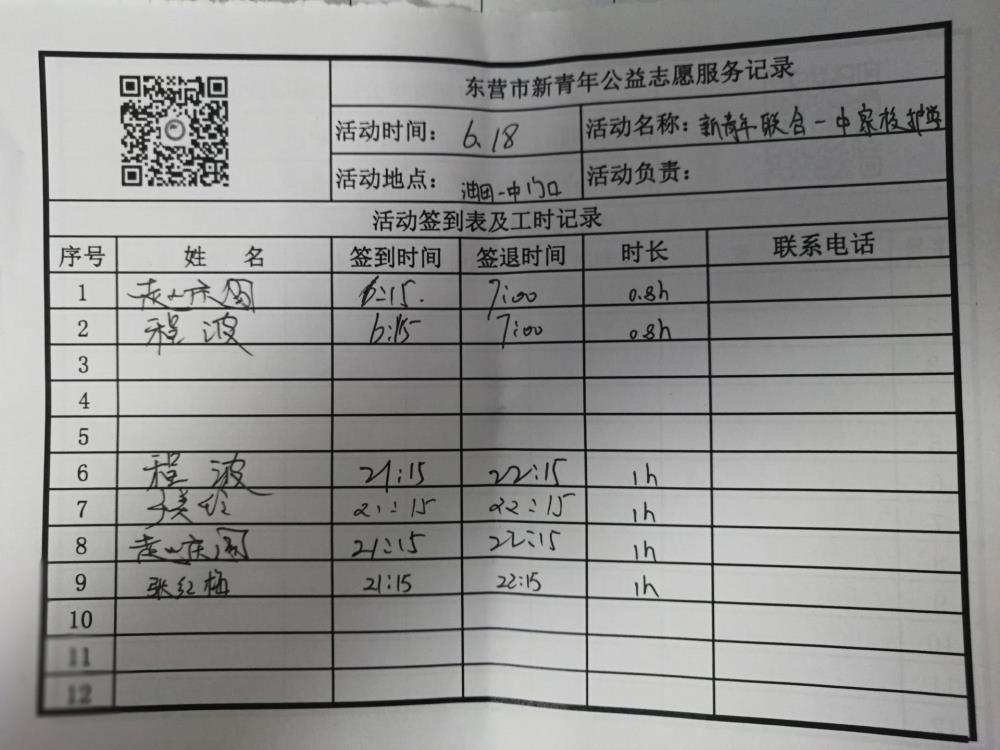 东营市新青年公益志愿服务记录
活动时间： 6.18 活动名称：新青年联合一中家校护学
活动地点： 油田一中门口 活动负责：
活动签到表及工时记录
序号 姓 名 签到时间 签退时间 时长 联系电话
1 6:15. 7:00 0.8h
2 程波 6:15 7:00 0.8h
3
4
5
6 程波 21:15 22:15 1h
7 21:15 22:15 1h
8 21:15 22:15 1h
9 张红梅 21:15 22:15 1h
10
11
12